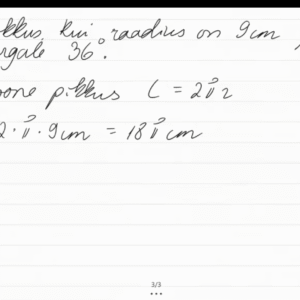 pikkus, kui raadius on 9 cm
nurgale 36°.
joone pikkus C = 2πr
2·π·9cm = 18π cm
3/3